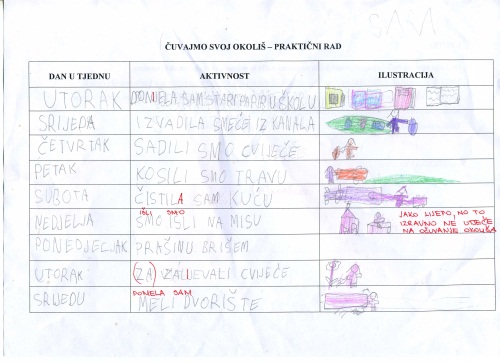 SARA
ČUVAJMO SVOJ OKOLIŠ – PRAKTIČNI RAD
DAN U TJEDNU AKTIVNOST ILUSTRACIJA
UTORAK DONIJELA SAM STARI PAPIR U ŠKOLU
SRIJEDA IZVADILA SMEĆE IZ KANALA
ČETVRTAK SADILI SMO CVIJEĆE
PETAK KOSILI SMO TRAVU
SUBOTA ČISTILA SAM KUĆU
IŠLI SMO
NEDJELJA SMO IŠLI NA MISU
JAKO LIJEPO, NO TO
IZRAVNO NE UTJEČE
NA OČUVANJE OKOLIŠA
PONEDJELJAK PRAŠINU BRIŠEM
UTORAK (ZA) ZALIJEVALI CVIJEĆE
POMELA SAM
SRIJEDU MELI DVORIŠTE